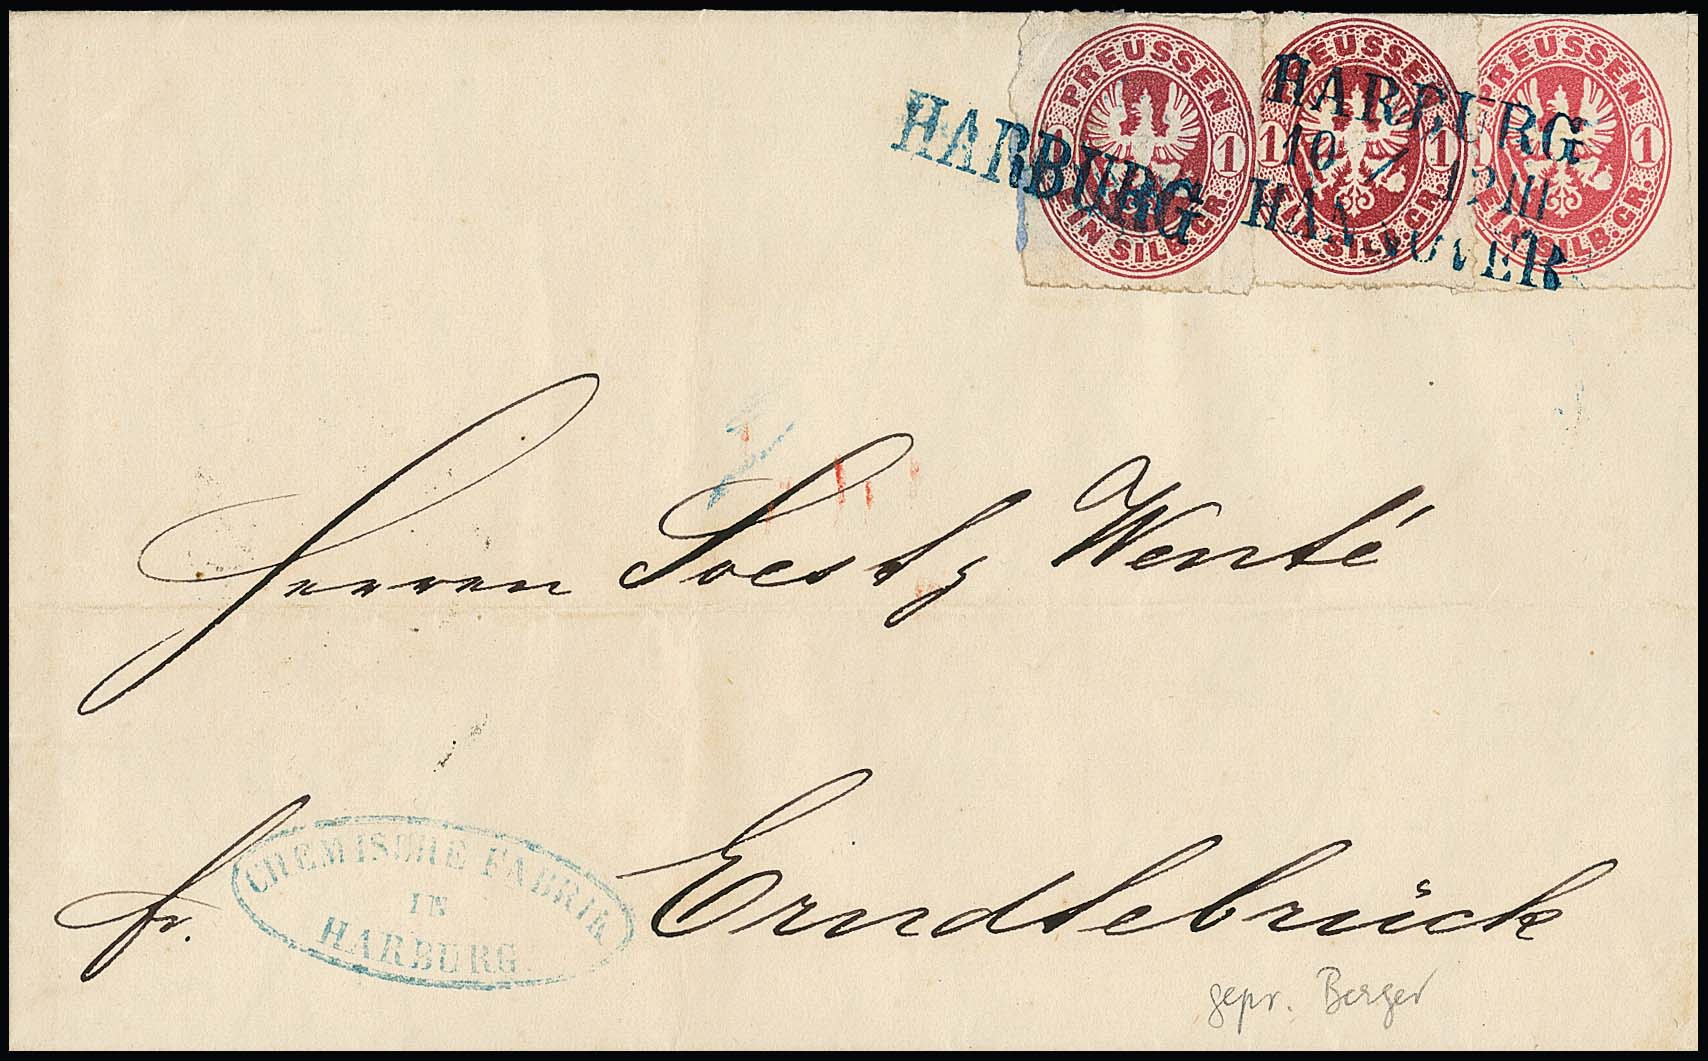 PREUSSEN
1 1
EIN SILB. GR.
PREUSSEN
1 1
EIN SILB. GR.
PREUSSEN
1 1
EIN SILB. GR.
HARBURG
HARBURG
10 / 12 III
HANNOVER
Herren Soest & Wenté
fr. Erndtebrück
CHEMISCHE FABRIK
IN
HARBURG
gepr. Berger